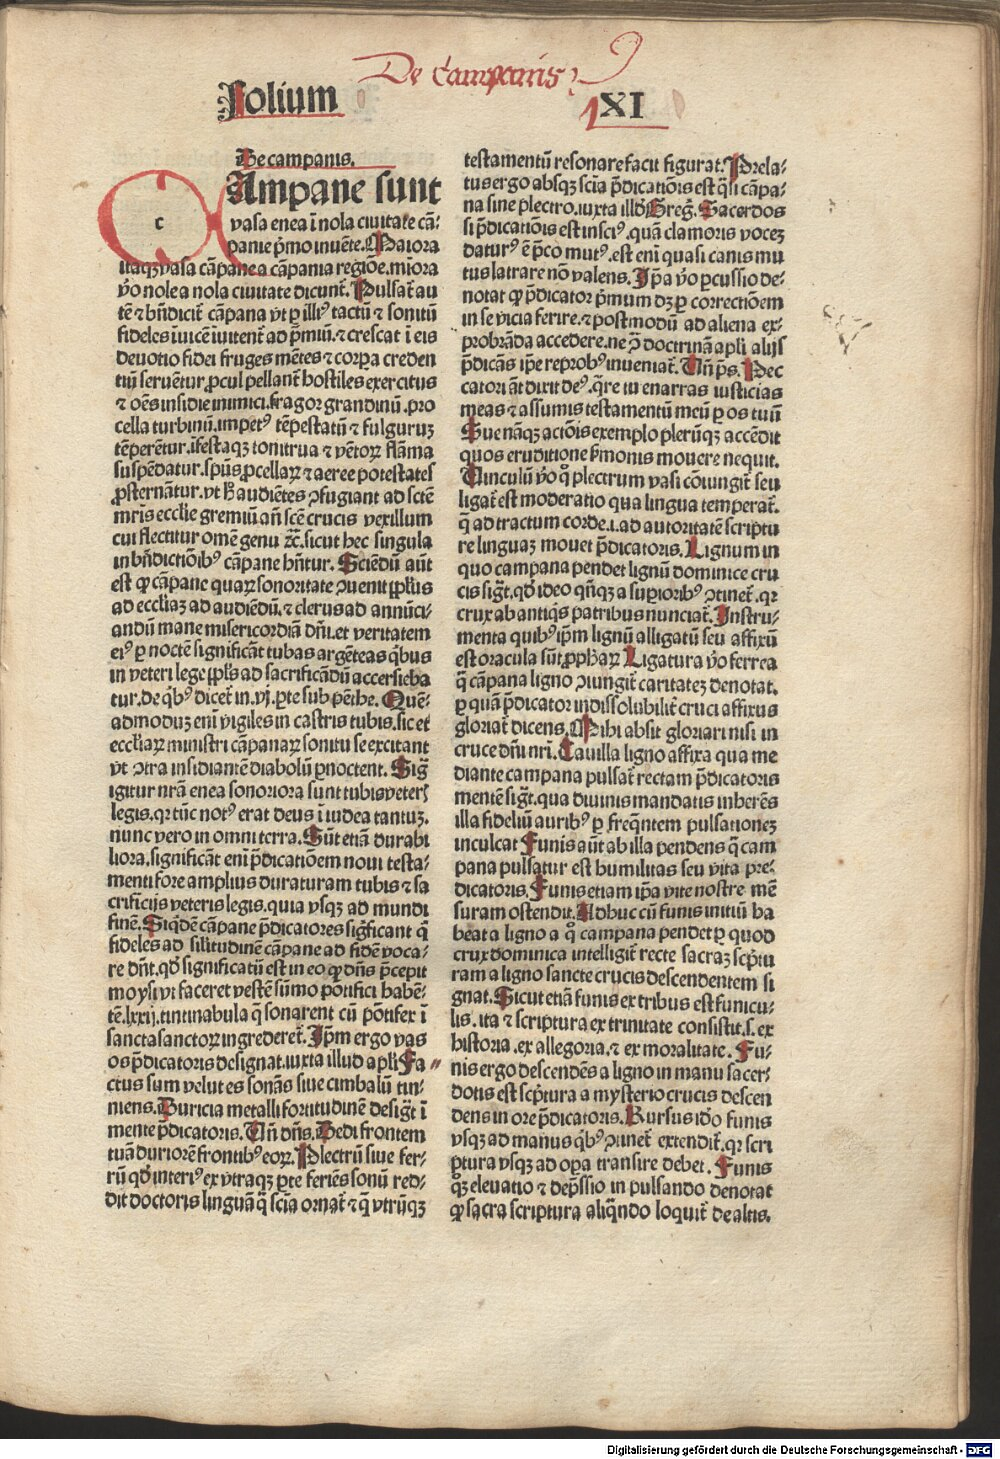 De Campanis
Folium XI
De campanis.
CAmpane sunt
c
vasa enea ī nola ciuitate cā-
panie p̄mo inuēte. Maiora
itaqꝫ vasa cāpane a cāpania regiōe. mīora
v̄o nole a nola ciuitate dicunt̄. Pulsat̄ au
tē ⁊ bn̄dicit̄ cāpana vt ꝑ illiꝰ tactū ⁊ sonitū
fideles īuicē īuitent̄ ad p̄miū. ⁊ crescat ī eis
deuotio fidei fruges mētes ⁊ corpa creden
tiū seruētur. ꝓcul pellant̄ hostiles exercitus
⁊ oēs insidie inimici. fragor grandinū. pro
cella turbinū. impetꝰ tēpestatū ⁊ fulguruꝫ
tēperētur. īfestaqꝫ tonitrua ⁊ vētoꝝ flāma
suspēdatur. spūs ꝓcellaꝝ ⁊ aeree potestates
ꝓsternātur. vt h̄ audiētes ꝯfugiant ad sctē
mr̄is ecclīe gremiū añ scē crucis vexillum
cui flectitur omē genu ⁊c̄. sicut hec singula
in bn̄dictiōibꝰ cāpane hn̄tur. Sciēdū aūt
est ꝙ cāpane quaꝝ sonoritate ꝯuenit ppl̄us
ad eccl̄iaꝫ ad audiēdū. ⁊ clerus ad annūci-
andū mane misericordiā dn̄i. et veritatem
eiꝰ ꝑ noctē significāt tubas argēteas q̄bus
in veteri lege ppl̄s ad sacrificādū accersieba
tur. de q̄bꝰ dicet̄ in. vj. ꝑte sub pēthe. Quē-
admoduꝫ enī vigiles in castris tubis. sic et
eccl̄iaꝝ ministri cāpanaꝝ sonitu se excitant
vt ꝯtra insidiantē diabolū ꝑnoctent. Sig̃
igitur nr̄a enea sonoriora sunt tubis veter̄
legis. qr tūc notꝰ erat deus ī iudea tantuꝫ.
nunc vero in omni terra. Sūt etiā durabi
liora. significāt enī p̄dicatiōem noui testa-
menti fore amplius duraturam tubis ⁊ sa
crificijs veteris legis. quia vsqꝫ ad mundi
finē. Siq̄dē cāpane p̄dicatores sig̃ficant q̄
fideles ad sil̄itudinē cāpane ad fidē voca-
re dn̄t. qd̄ significatū est in eo ꝙ dn̄s p̄cepit
moysi vt faceret vestē sūmo pōtifici habē-
tē. lxxij. tintinabula q̄ sonarent cū pōtifex ī
sancta sanctoꝝ ingrederet̄. Ip̄m ergo vas
os p̄dicatoris designat. iuxta illud apl̄i Fa
ctus sum velut es sonās siue cimbalū tin-
niens. Duricia metalli fortitudinē desig̃t ī
mente p̄dicatoris. Un̄ dn̄s. Dedi frontem
tuā duriorē frontibꝰ eoꝝ. Plectrū siue fer-
rū qd̄ interiꝰ ex vtraqꝫ ꝑte feriēs sonū red-
dit doctoris linguā q̄ scīa ornat̄ ⁊ q̄ vtrūqꝫ
testamentū resonare facit figurat. Prela-
tus ergo absqꝫ scīa p̄dicatiōis est q̄si cāpa-
na sine plectro. iuxta illd̄ Greg̃. Sacerdos
si p̄dicatiōis est insciꝰ. quā clamoris voceꝫ
daturꝰ ē p̄co mutꝰ. est enī quasi canis mu
tus latrare nō valens. Ip̄a v̄o ꝑcussio de-
notat ꝙ p̄dicator p̄mum dꝫ ꝑ correctiōem
in se vicia ferire. ⁊ postmodū ad aliena ex-
probrāda accedere. ne ꝯ̄ doctrinā apl̄i alijs
p̄dicās ip̄e reprobꝰ inueniat̄. Un̄ p̄s. Pec
catori āt dixit deꝰ. q̄re tu enarras iusticias
meas ⁊ assumis testamentū meū ꝑ os tuū
Sue nāqꝫ actōis exemplo plerūqꝫ accēdit
quos eruditione ẜmonis mouere nequit.
Uinculū v̄o q̊ plectrum vasi cōiungit̄ seu
ligat̄ est moderatio qua lingua temperat̄.
q̄ ad tractum corde. i. ad autoritatē scriptu
re linguaꝫ mouet p̄dicatoris. Lignum in
quo campana pendet lignū dominice cru
cis sig̃t. qd̄ ideo qn̄qꝫ a supioribꝰ ꝯtinet̄. qr
crux ab antiq̄s patribus nunciat̄. Instru-
menta quibꝰ ip̄m lignū alligatū seu affixū
est oracula sūt ꝓph̄aꝝ. Ligatura v̄o ferrea
q̄ cāpana ligno ꝯiungit̄ caritateꝫ denotat.
ꝑ quā p̄dicator indissolubilit̄ cruci affixus
gloriat̄ dicens. Mihi absit gloriari nisi in
cruce dn̄i nr̄i. Cauilla ligno affixa qua me
diante campana pulsat̄ rectam p̄dicatoris
mentē sig̃t. qua diuinis mandatis inherēs
illa fideliū auribꝰ ꝑ freq̄ntem pulsationeꝫ
inculcat Funis aūt ab illa pendens q̄ cam
pana pulsatur est humilitas seu vita pre-
dicatoris. Funis etiam ip̄a vite nostre mē
suram ostendit. Adhuc cū funis initiū ha
beat a ligno a q̊ campana pendet ꝑ quod
crux dominica intelligit̄ recte sacraꝫ scp̄tu
ram a ligno sancte crucis descendentem si
gnat. Sicut etiā funis ex tribus est funicu-
lis. ita ⁊ scriptura ex trinitate consistit. s. ex
historia. ex allegoria. ⁊ ex moralitate. Fu-
nis ergo descendēs a ligno in manu sacer-
dotis est scp̄tura a mysterio crucis descen
dens in ore p̄dicatoris. Rursus id̄o funis
vsqꝫ ad manus q̄bꝰ ꝯtinet̄ extendit̄. qr scri
ptura vsqꝫ ad opa transire debet. Funis
qꝫ eleuatio ⁊ dep̄ssio in pulsando denotat
ꝙ sacra scriptura aliq̄ndo loquit̄ de altis.
Digitalisierung gefördert durch die Deutsche Forschungsgemeinschaft - DFG